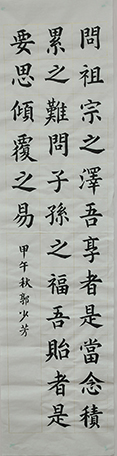 問祖宗之澤吾享者是當念積
累之難問子孫之福吾貽者是
要思傾覆之易
甲午秋郭少芳